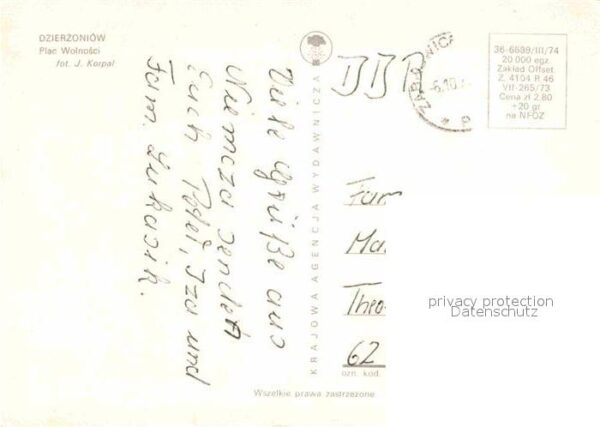 DZIERŻONIÓW
Plac Wolności
fot. J. Korpal
Viele Grüße aus
Niemcza sendet
Euch Tadei, Iza und
Fam. Lukasik.
KRAJOWA AGENCJA WYDAWNICZA
BBR
36-6699/III/74
20 000 egz.
Zakład Offset.
Z. 4104 R. 46
VII-265/73
Cena zł 2,80
+20 gr
na NFOZ
Fam
Ma
Theo
62
ozn. kod.
Wszelkie prawa zastrzeżone
privacy protection
Datenschutz